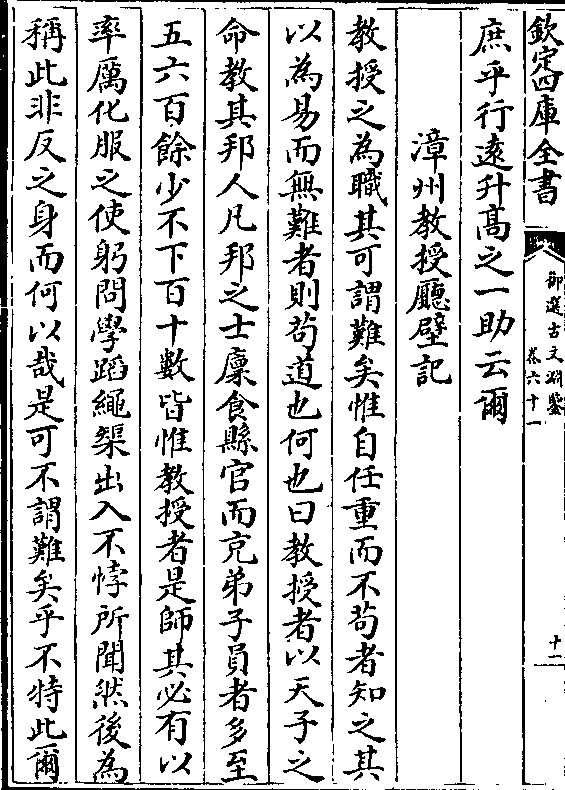 欽定四庫全書
御選古文淵鑒
卷六十一
十一
庶乎行逺升髙之一助云爾
漳州教授廳壁記
教授之為職其可謂難矣惟自任重而不苟者知之其
以為易而無難者則苟道也何也曰教授者以天子之
命教其邦人凡邦之士廩食縣官而充弟子員者多至
五六百餘少不下百十數皆惟教授者是師其必有以
率厲化服之使躬問學蹈繩榘出入不悖所聞然後為
稱此非反之身而何以哉是可不謂難矣乎不特此爾